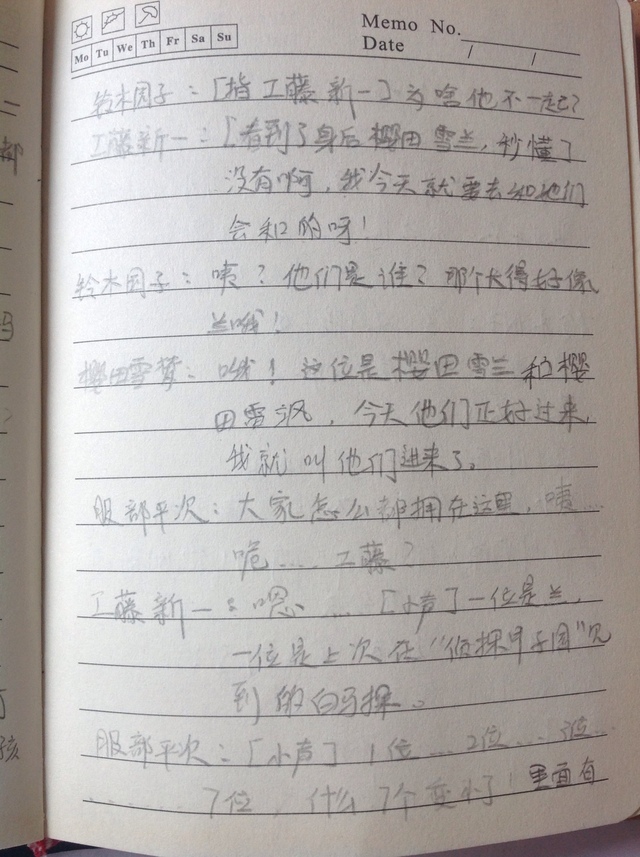 Memo No.
Date / /
Mo Tu We Th Fr Sa Su
铃木园子：[指工藤新一]为啥他不一起？
工藤新一：[看到了身后樱田雪兰，秒懂了
没有啊，我今天就要去和他们
会和的呀！
铃木园子：咦？他们是谁？那个长得好像
兰哦！
樱田雪梦：哦！这位是樱田雪兰和樱
田雪沨，今天他们正好过来，
我就叫他们进来了。
服部平次：大家怎么都拥在这里，咦…
咣……工藤？
工藤新一：嗯……[小声]一位是兰，
一位是上次在“侦探甲子园”见
到的白马探。
服部平次：[小声]1位…2位…3位…
………7位，什么7个变小了！里面有
都
吗
孩